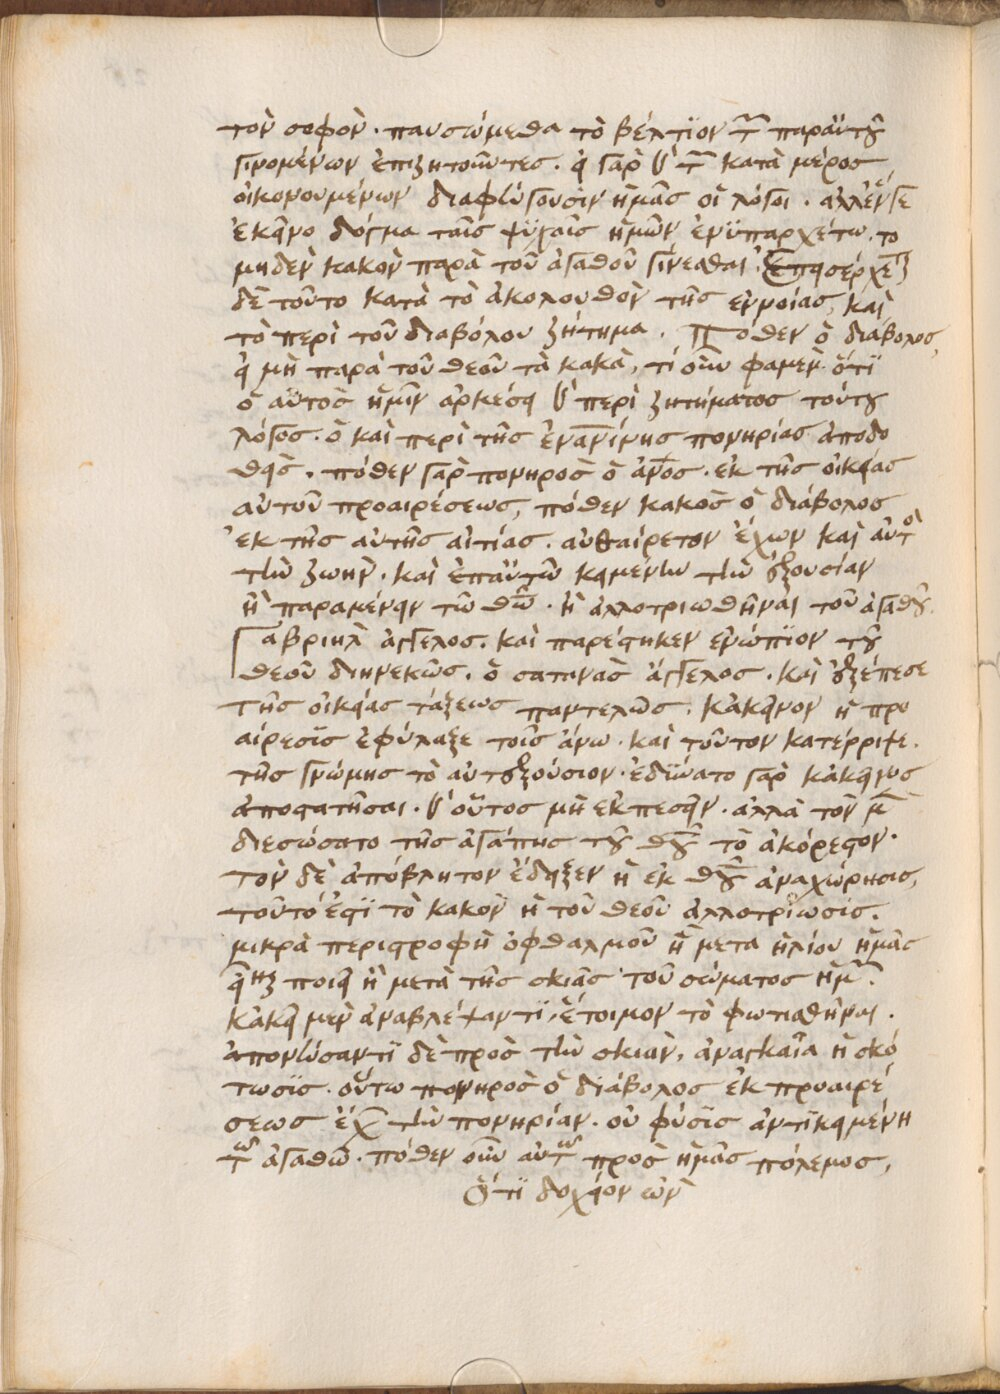 τὸν σοφὸν · παυσώμεθα τὸ βέλτϊον τῶν παρ' αὐτοῦ
γινομένων ἐπιζητοῦντες · εἰ γὰρ οἱ τῶν κατὰ μέρος
οἰκονουμένων διαφεύγουσιν ἡμᾶς οἱ λόγοι · ἀλλ' ἕν γε
ἐκεῖνο δόγμα ταῖς ψυχαῖς ἡμῶν ἐνϋπαρχέτω · το
μηδὲν κακὸν παρὰ τοῦ ἀγαθοῦ γίνεσθαι · Ἐπεισέρχεται
δὲ τοῦτο κατὰ τὸ ἀκολουθὸν τῆς ἐννοίας, καὶ
τὸ περὶ τοῦ διαβόλου ζήτημα . Πόθεν ὁ διάβολος,
εἰ μὴ παρὰ τοῦ θεοῦ τὰ κακὰ, τί οὖν φαμεν · ὅτϊ
ὁ αὐτὸς ἡμῖν ἀρκέσει ὁ περὶ ζητήματος τούτου
λόγος · ὁ καὶ περὶ τῆς ἐν ἀνθρώποις πονηρίας ἀποδο
θεὶς . πόθεν γὰρ πονηρὸς ὁ ἄνος · ἐκ τῆς οἰκείας
αὐτοῦ προαιρέσεως, πόθεν κακὸς ὁ διάβολος
ἐκ τῆς αὐτῆς αἰτίας . αὐθαίρετον ἔχων καὶ αὐτὸς
τὴν ζωὴν · καὶ ἐπ' αὐτῶ κειμένην τὴν ἐξουσίαν
ἢ παραμένειν τῶ θῶ · ἢ ἀλλοτριωθῆναι τοῦ ἀγαθοῦ.
Γαβριὴλ ἄγγελος · καὶ παρέστηκεν ἐνώπϊον τοῦ
θεοῦ διηνεκῶς . ὁ σατανᾶς ἄγγελος · καὶ ἐξέπεσε
τῆς οἰκείας τάξεως παντελῶς . κἀκεῖνον ἡ προ
αίρεσϊς ἐφύλαξε τοῖς ἄνω · καὶ τοῦτον κατέρριψε .
τῆς γνώμης τὸ αὐτεξούσιον · ἐδύνατο γὰρ κἀκεῖνος
ἀποστατῆσαι · ὁ οὗτος μὴ ἐκπεσεῖν . ἀλλὰ τὸν μὲν
διεσώσατο τῆς ἀγάπης τοῦ θῦ τὸ ἀκόρεστον ·
τὸν δὲ ἀπόβλητον ἔδειξεν ἡ ἐκ θῦ ἀναχώρησις,
τοῦτό ἐστϊ τὸ κακὸν ἡ τοῦ θεοῦ ἀλλοτρίωσϊς .
μικρὰ περιστροφὴ ὀφθαλμοῦ ἢ μετα ἡλίου ἡμᾶς
εἶναι ποιεῖ ἢ μετὰ τῆς σκιᾶς τοῦ σώματος ἡμῶν .
κἀκεῖ μὲν ἀναβλέψαντϊ, ἕτοιμον τὸ φωτισθῆναι .
ἀπονεύσαντϊ δὲ πρὸς τὴν σκιὰν, ἀναγκαῖα ἡ σκό
τωσϊς · οὕτω πονηρὸς ὁ διάβολος ἐκ προαιρέ
σεως ἔχων τὴν πονηρίαν · οὐ φύσϊς ἀντϊκειμένη
τῶ ἀγαθῶ · πόθεν οὖν αὐτῶ πρὸς ἡμᾶς πόλεμος,
ὅτϊ δοχεῖον ὢν